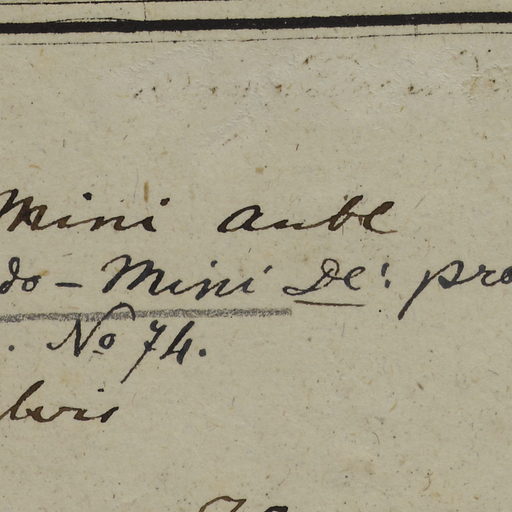 Mini aube
do - Mini De: pro
. No 74.